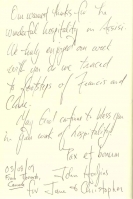 Our warmest thanks for the
wonderful hospitality in Assisi
We truly enjoyed our week
with you as we traced
the footsteps of Francis and
Clare.
May God continue to bless you
in your work of hospitality!
Pax et bonum
05/09/09
John
for Jane & Christopher
Canada